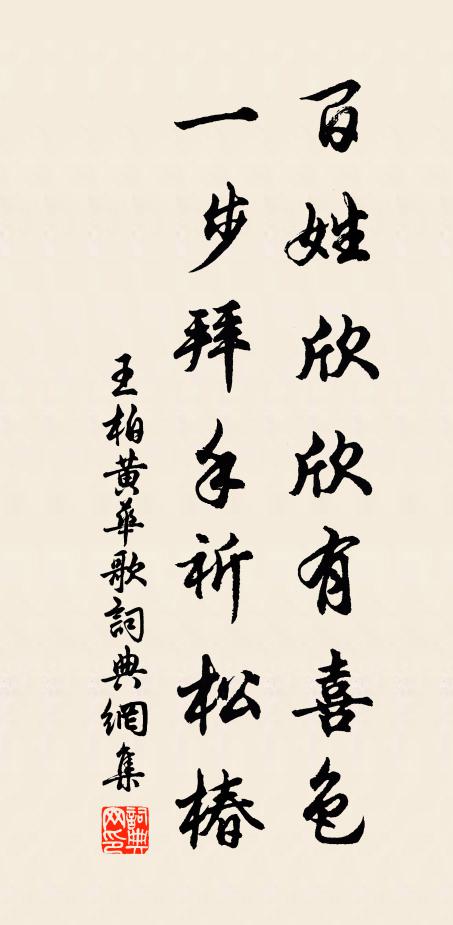 百姓欣欣有喜色
一步拜手祈松椿
王柏黃華歌詞典網集
詞典網印